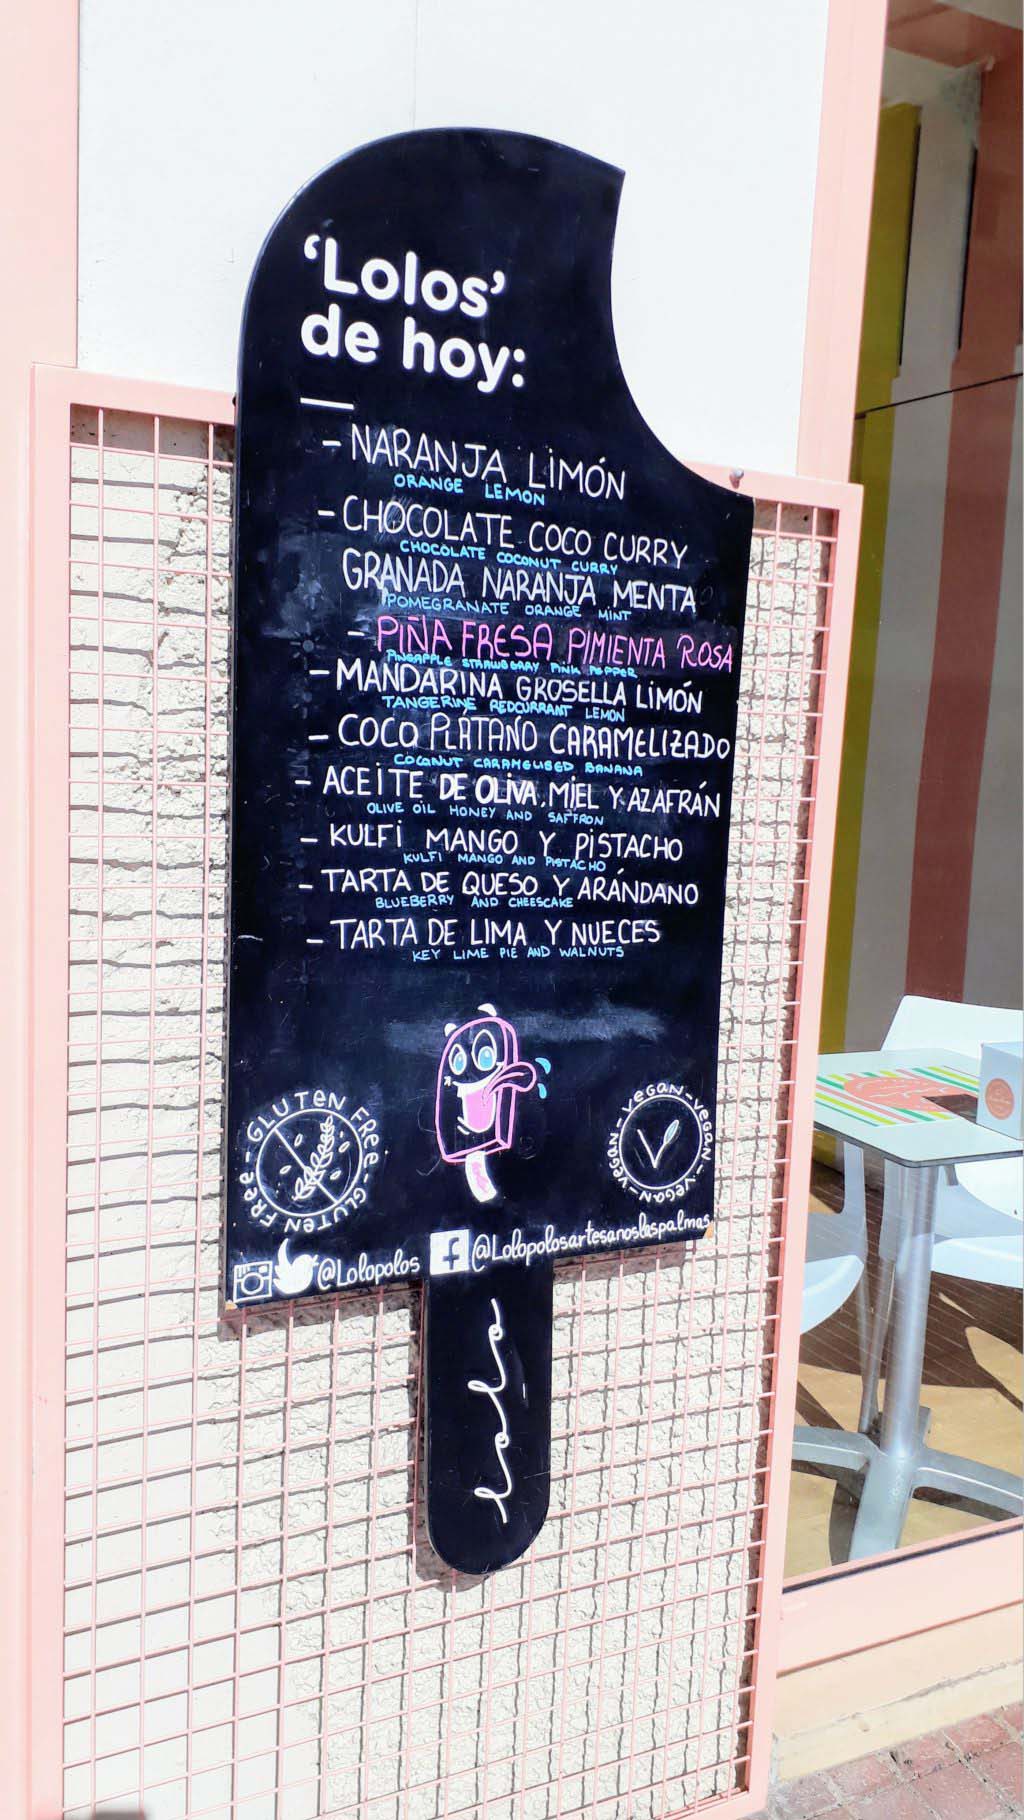 'Lolos'
de hoy:
- NARANJA LIMÓN
ORANGE LEMON
- CHOCOLATE COCO CURRY
CHOCOLATE COCONUT CURRY
GRANADA NARANJA MENTA
POMEGRANATE ORANGE MINT
- PIÑA FRESA PIMIENTA ROSA
PINEAPPLE STRAWBERRY PINK PEPPER
- MANDARINA GROSELLA LIMÓN
TANGERINE REDCURRANT LEMON
- COCO PLÁTANO CARAMELIZADO
COCONUT CARAMELISED BANANA
- ACEITE DE OLIVA, MIEL Y AZAFRÁN
OLIVE OIL HONEY AND SAFFRON
- KULFI MANGO Y PISTACHO
KULFI MANGO AND PISTACHO
- TARTA DE QUESO Y ARÁNDANO
BLUEBERRY AND CHEESCAKE
- TARTA DE LIMA Y NUECES
KEY LIME PIE AND WALNUTS
GLUTEN FREE - GLUTEN FREE -
VEGAN - VEGAN - VEGAN - VEGAN -
@Lolopolos f @Lolopolosartesanoslaspalmas
lolo